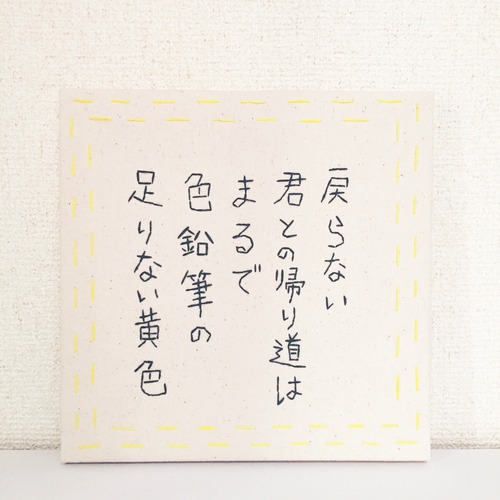 戻らない
君との帰り道は
まるで
色鉛筆の
足りない黄色